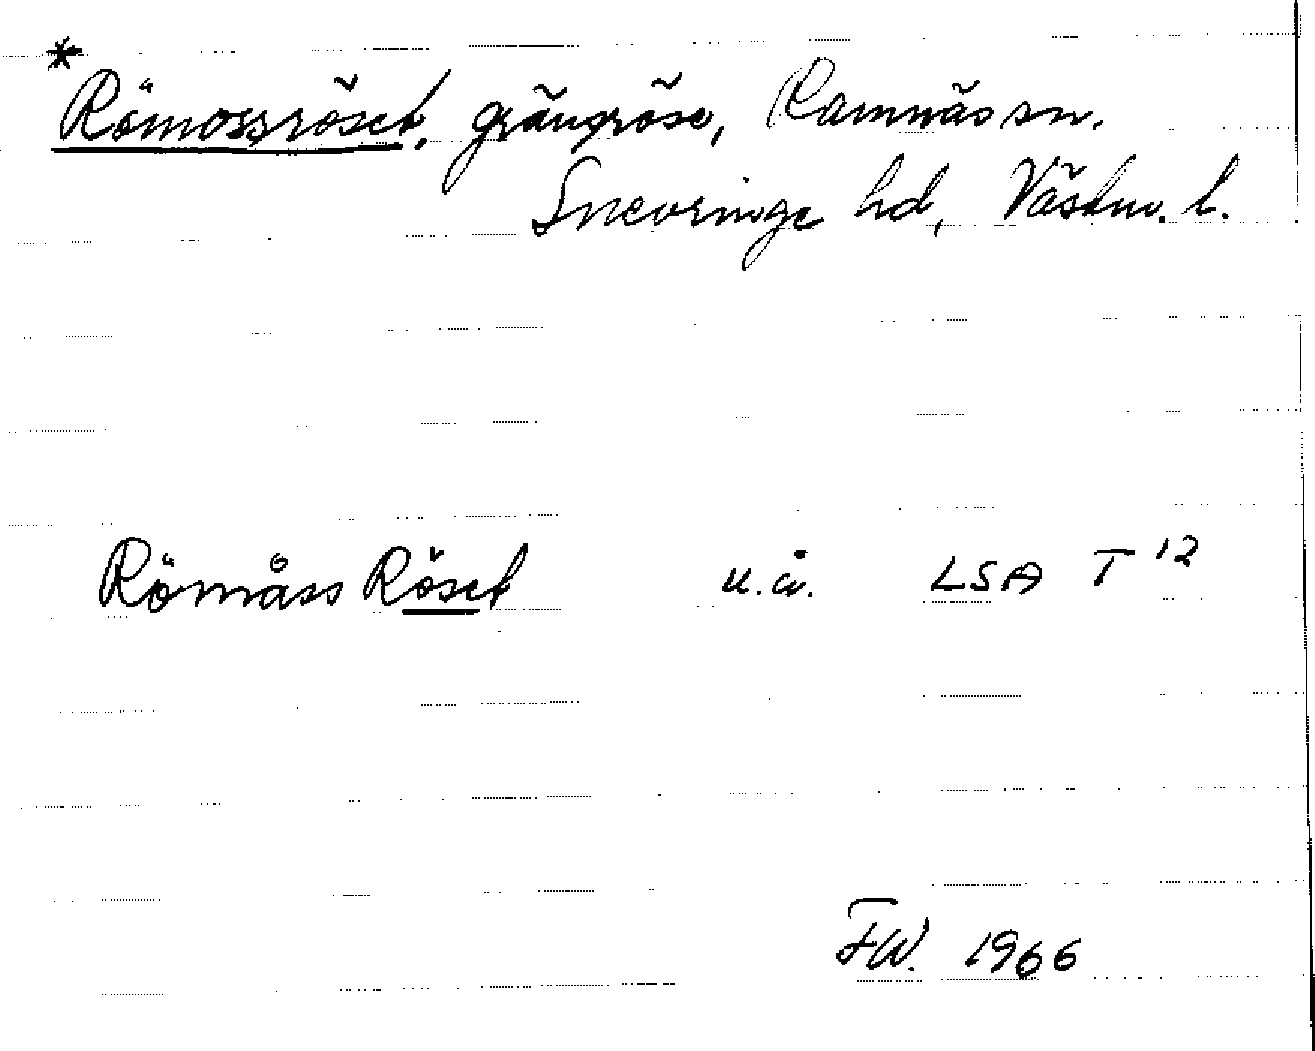 *
Römossröset, gränsröse, Ramnäs sn.
Snevringe hd, Västm. l.
Römåss Röset u.å. LSA T 12
FW. 1966